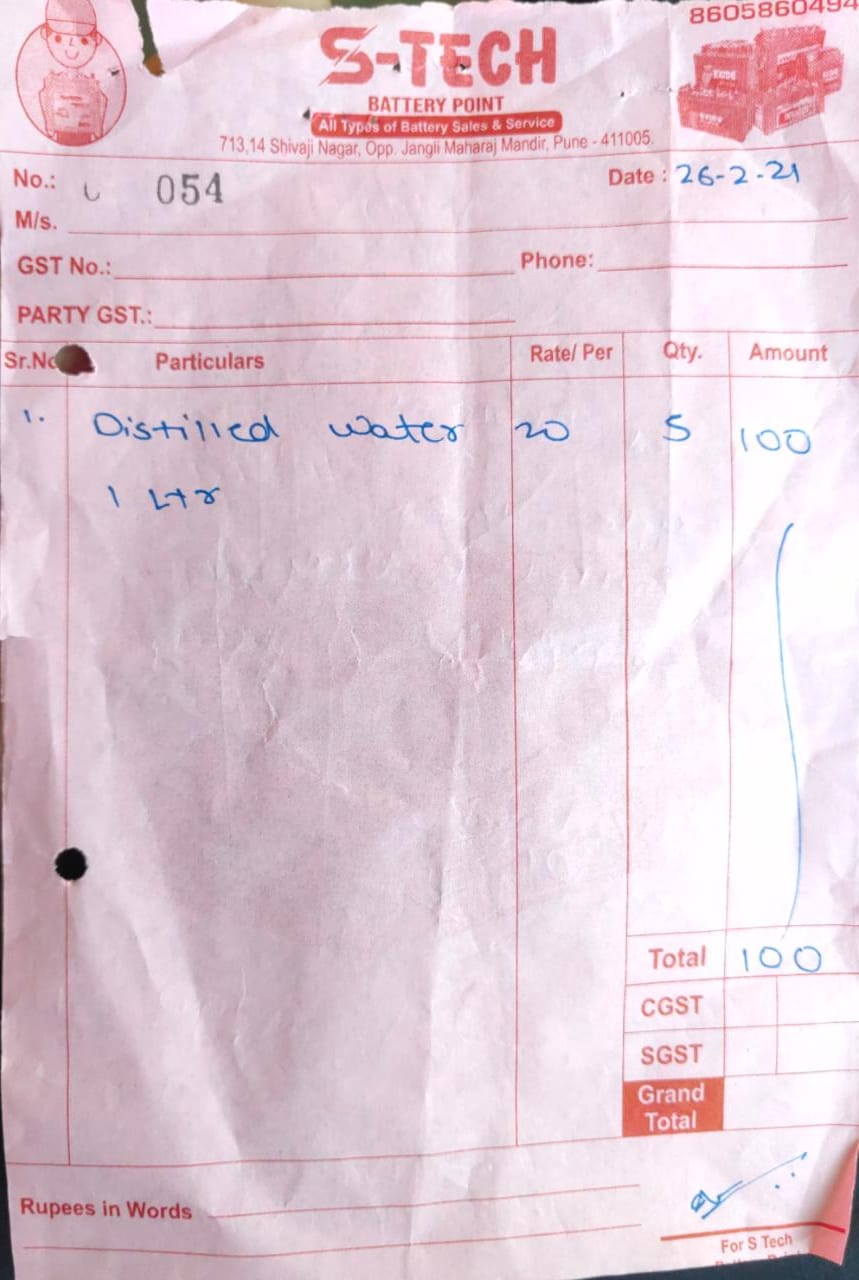 8605860494
S-TECH
BATTERY POINT
All Types of Battery Sales & Service
713,14 Shivaji Nagar, Opp. Jangli Maharaj Mandir, Pune - 411005.
No.: 054 Date : 26-2-21
M/s.
GST No.: Phone:
PARTY GST.:
Sr.No Particulars Rate/ Per Qty. Amount
1. Distilled water 20 5 100
1 Ltr
Total 100
CGST
SGST
Grand
Total
Rupees in Words
For S Tech